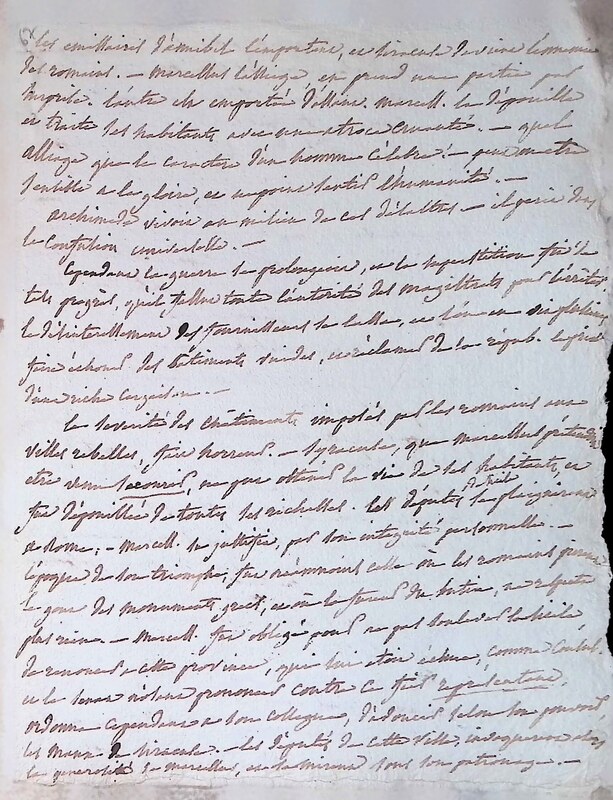 les emissaires d'annibal l'emportent, et siracuse devient l'ennemie
des romains. — marcellus l'assiege, en prend une partie par
surprise. l'autre est emportée d'assaut. marcell. la dépouille
et traite ses habitants avec une atroce cruauté. — quel
alliage que le caractere d'un homme célebre! — peut on etre
sensible a la gloire, et ne point sentir l'humanité. —
archimede vivoit au milieu de ces désastres — il périt dans
la confusion universelle. —
Cependant la guerre se prolongeoit, et la superstition fit de
tels progrès, qu'il fallut toute l'autorité des magistrats pour l'arrêter
le désinteressement des fournisseurs se lassa, et l'on en vit plusieurs
faire échouer des bâtiments vuides, et réclamer de la répub. le prix
d'une riche cargaison. —
la severité des châtiments imposés par les romains aux
villes rebelles, fait horreur. — Syracuse, que marcellus prétendoit
etre venu secourir, ne put obtenir la vie de ses habitants, et
fut dépouillée de toutes ses richesses. Les députés de sicile se plaignirent
a Rome. — Marcell. se justifia, par son intégrité personnelle. —
l'époque de son triomphe, fut néanmoins celle où les romains prirent
le gout des monuments grecs, et où la fureur du butin, ne respecta
plus rien. — Marcell. fut obligé pour ne pas soulever la sicile
de renoncer a cette province, qui lui etoit échue, comme Consul.
et le senat n'osant prononcer contre ce fier représentant,
ordonna cependant a son collegue, d'adoucir selon son pouvoir
les maux de siracuse. — les députés de cette ville, invoquerent alors
la generosité de marcellus, et se mirent sous son patronage. —